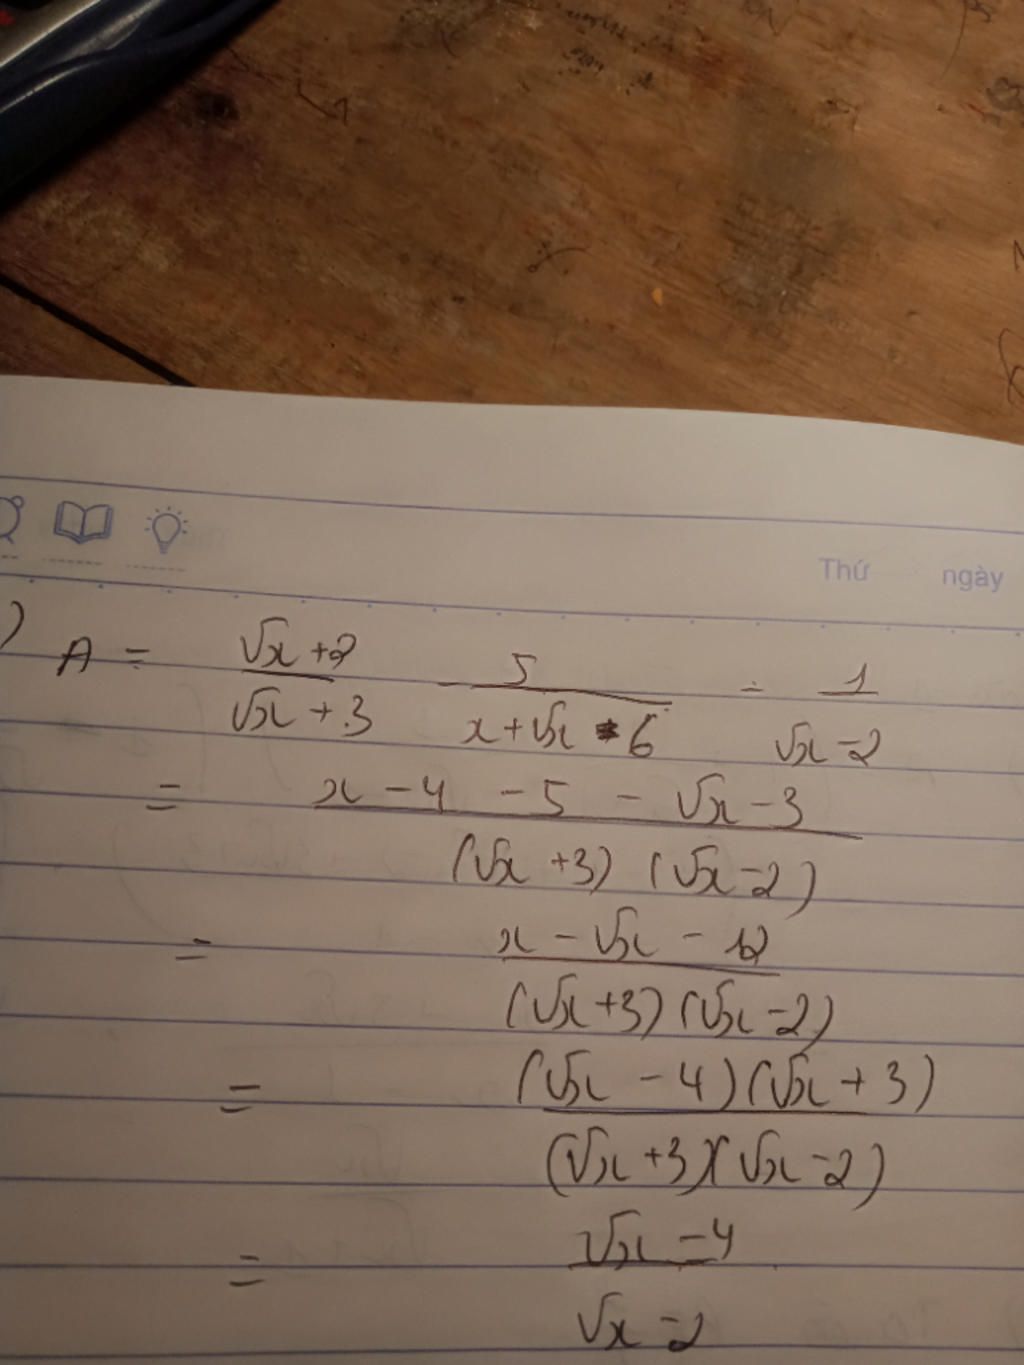 Thứ ngày
) A = √x + 2 / √x + 3 - 5 / x + √x - 6 - 1 / √x - 2
= x - 4 - 5 - √x - 3 / (√x + 3) (√x - 2)
= x - √x - 12 / (√x + 3) (√x - 2)
= (√x - 4) (√x + 3) / (√x + 3) (√x - 2)
= √x - 4 / √x - 2